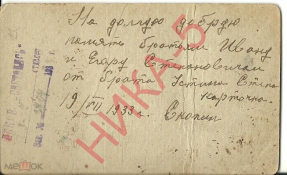 На долгую добрую
память братьям Ивану
и Егору Степановичам
от брата
карточка
19 VII 1933 г. Скопин
НИКА-5
МЕШОК